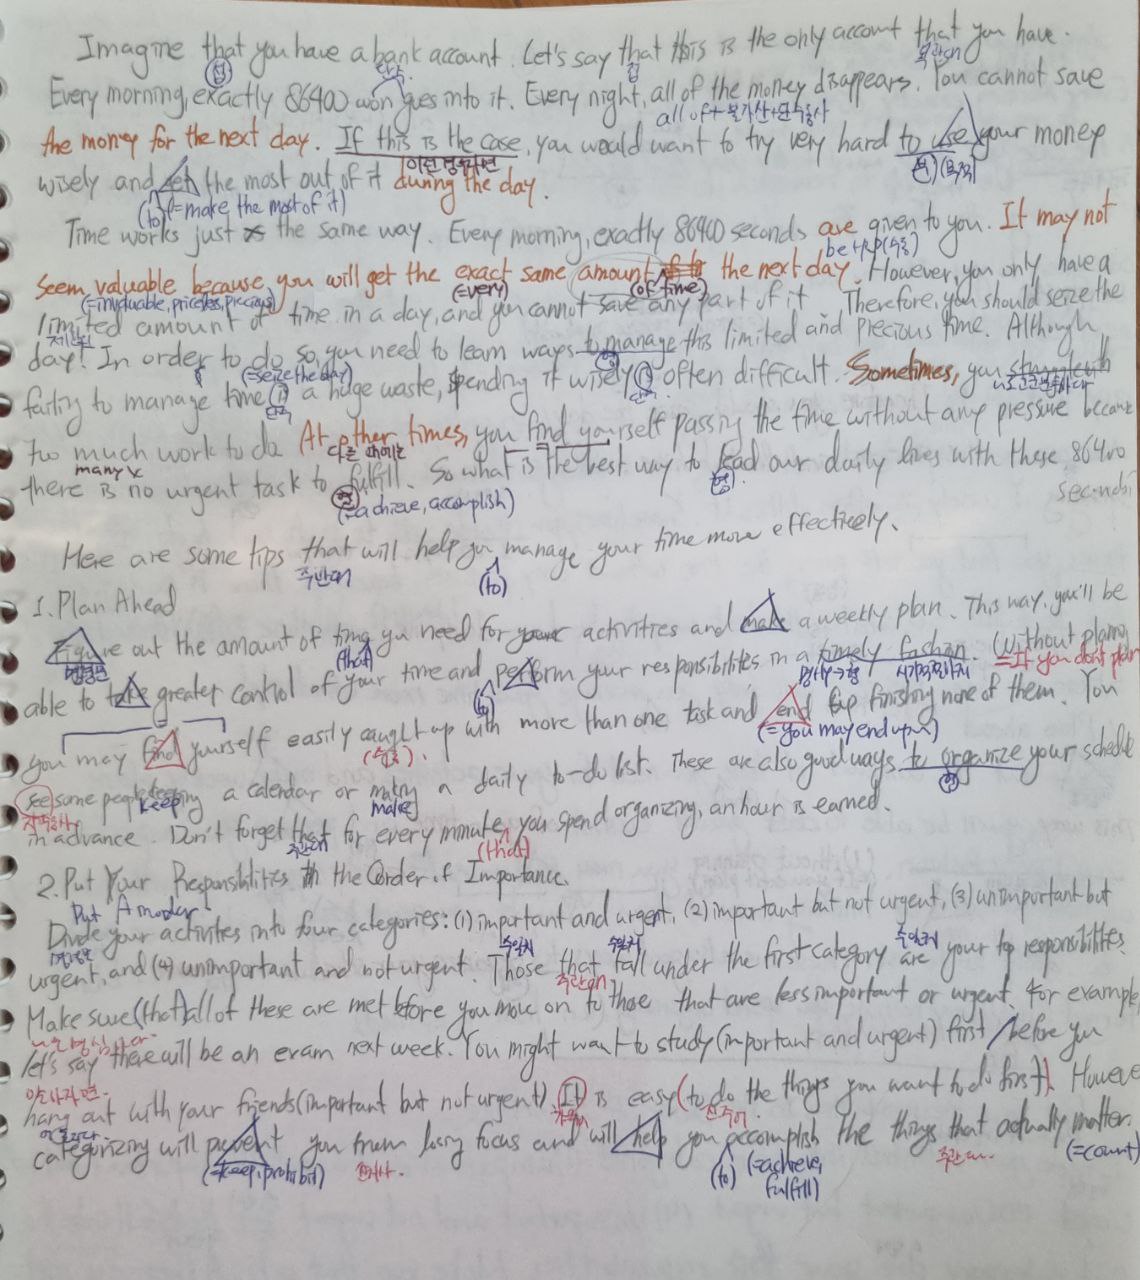 Imagine that you have a bank account. Let's say that this is the only account that you have.
접 단수 접 목관대
Every morning, exactly 86400 won goes into it. Every night, all of the money disappears. You cannot save
all of + 불가산 + 단수동사
the money for the next day. If this is the case, you would want to try very hard to use your money
이런 경우라면
wisely and get the most out of it during the day.
(to) (=make the most of it)
Time works just the same way. Every morning, exactly 86400 seconds are given to you. It may not
be + p.p (수동)
seem valuable because you will get the exact same amount the next day. However, you only have a
(=invaluable, priceless, precious) (=very) (of time)
limited amount of time in a day, and you cannot save any part of it Therefore, you should seize the
제한된
day! In order to do so, you need to learn ways to manage this limited and precious time. Although
(=seize the day) 형
failing to manage time is a huge waste, spending it wisely is often difficult. Sometimes, you
단수 단수
too much work to do At other times, you find yourself passing the time without any pressure because
many x 다른 때에는
there is no urgent task to fulfill. So what is the best way to lead our daily lives with these 86400
seconds
형 (=achieve, accomplish) 형
Here are some tips that will help you manage your time more effectively.
주관대 (to)
1. Plan Ahead
Figure out the amount of time you need for your activities and make a weekly plan. This way, you'll be
명령문 (that)
able to take greater control of your time and perform your responsibilities in a timely fashion. (Without planning
(to) 명사+ly→형 =If you don't plan
you may find yourself easily caught up with more than one task and end up finishing none of them. You
(수동) (=you may end up~)
see some people keeping a calendar or making a daily to-do list. These are also good ways to organize your schedule
지각동사 keep make 형
in advance. Don't forget that for every minute you spend organizing, an hour is earned.
(that)
2. Put Your Responsibilities in the Order of Importance.
Put A in order
Divide your activities into four categories: (1) important and urgent, (2) important but not urgent, (3) unimportant but
명령문 수일치 수일치 수일치
urgent, and (4) unimportant and not urgent. Those that fall under the first category are your top responsibilities.
주관대
Make sure (that) all of these are met before you move on to those that are less important or urgent. For example
let's say there will be an exam next week. You might want to study (important and urgent) first before you
hang out with your friends (important but not urgent). It is easy (to do the things you want to do first). However
가주어 진주어
categorizing will prevent you from losing focus and will help you accomplish the things that actually matter.
(=keep, prohibit) 전치사. (to) (=achieve, fulfill) 주관대. (=count)